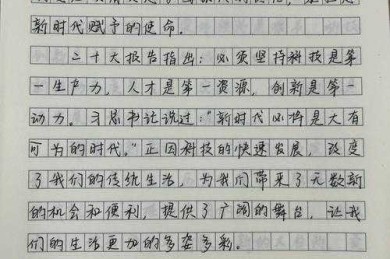 新时代赋予的使命.
二十大报告指出:必须坚持科技是第
一生产力,人才是第一资源,创新是第一
动力。习总书记说过:"新时代必将是大有
可为的时代。"正因科技的快速发展,改变
了我们的传统生活,为我们带来了无数新
的机会和便利,提供了广阔的舞台,让我
们的生活更加的多姿多彩.